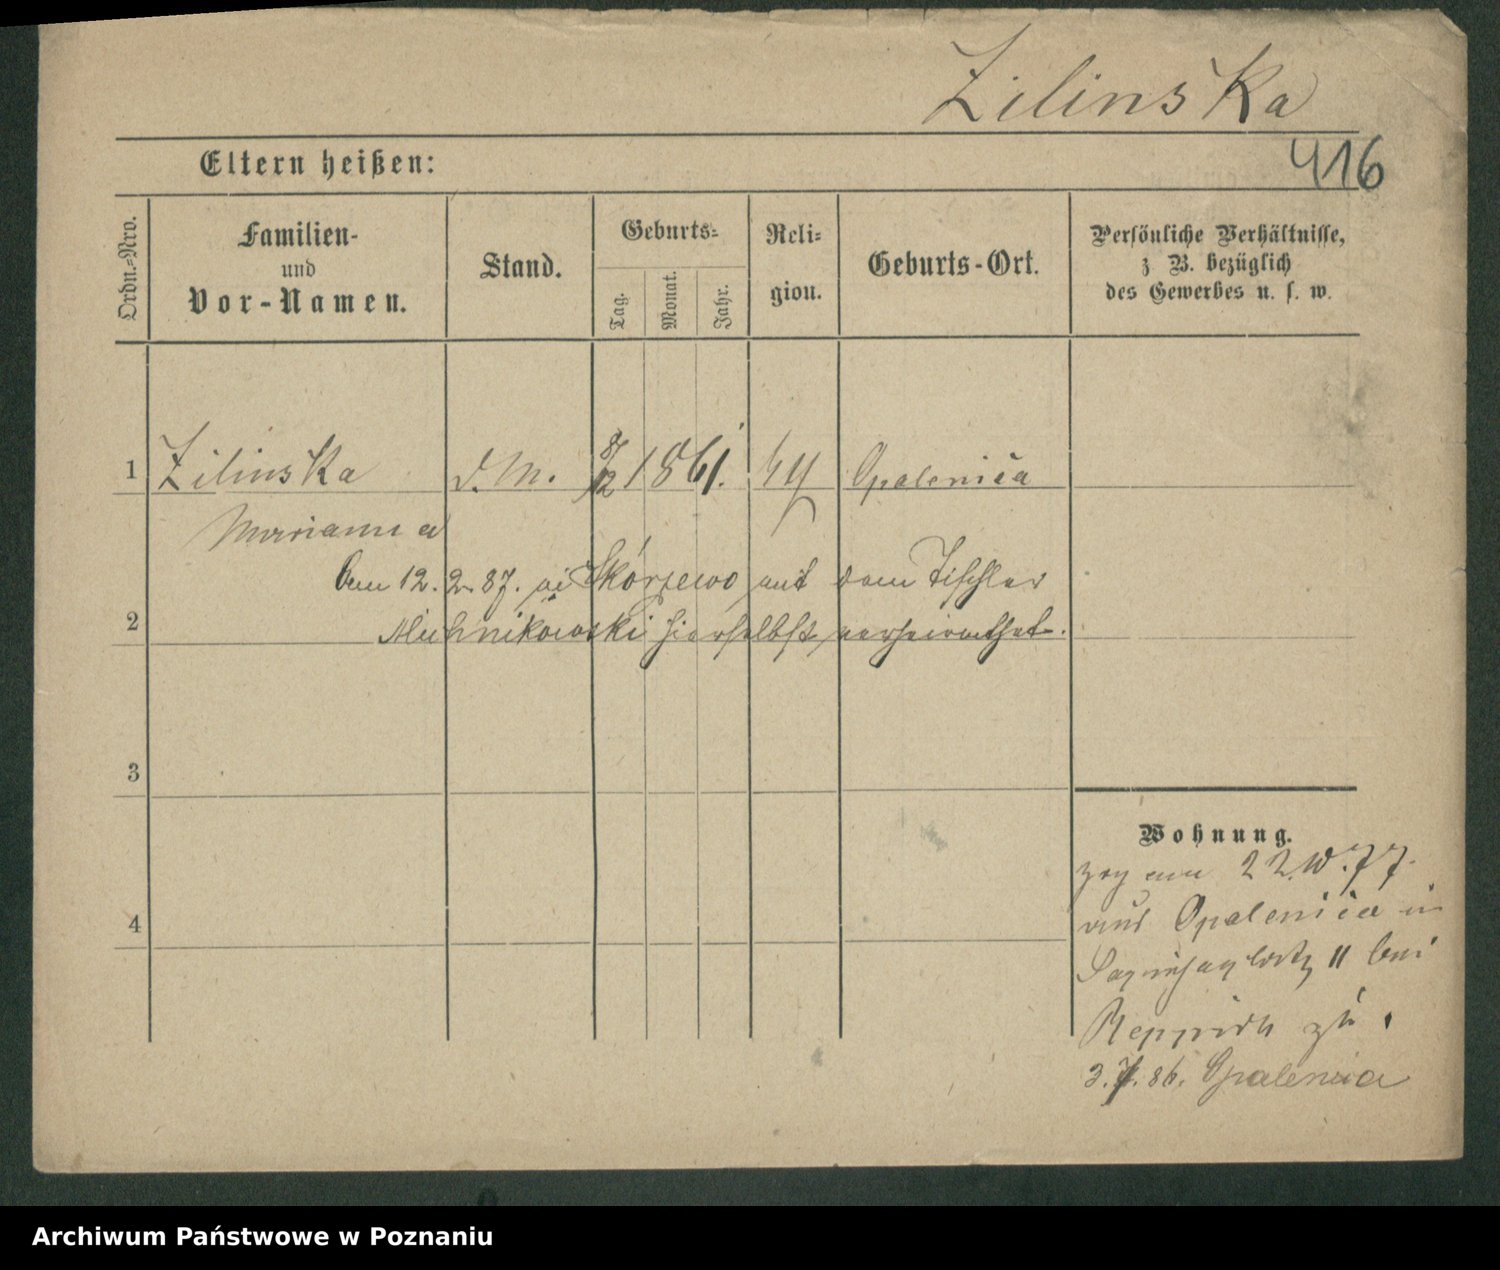 Zilinska
416
Eltern heißen:
Ordn.-Nro.
Familien-
und
Vor-Namen.
Stand.
Geburts-
Tag.
Monat.
Jahr.
Reli-
gion.
Geburts-Ort.
Persönliche Verhältnisse,
z B. bezüglich
des Gewerbes u. s. w.
1 Zilinska d. M. 8/12 1861. Opalenica
Marianna
Am 12. 2. 87. Skórzewo mit dem Tischler
2 hierselbst verheirathet.
3
Wohnung.
zog am 22. 10. 77.
aus Opalenica in
4
Sapiehaplatz 11 bei
zu.
3. 7. 86. Opalenica
Archiwum Państwowe w Poznaniu